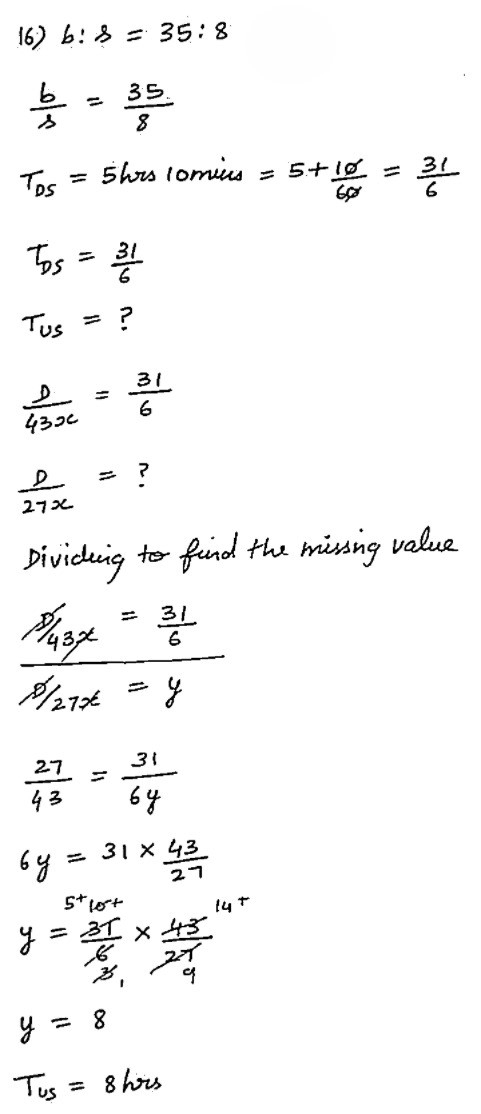 16) b: s = 35:8
b/s = 35/8
T_DS = 5hrs 10mins = 5+10/60 = 31/6
T_DS = 31/6
T_US = ?
D/43x = 31/6
D/27x = ?
Dividing to find the missing value
D/43x = 31/6
D/27x = y
27/43 = 31/6y
6y = 31 × 43/27
5+ 10+ 14+
y = 31/6 × 43/27
3 1 9
y = 8
T_US = 8hrs